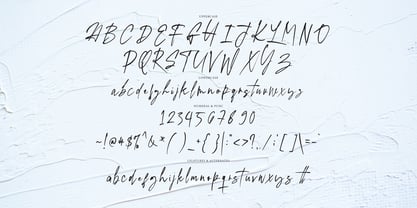 UPPERCASE
ABCDEFGHIJKLMNO
PQRSTUVWXYZ
LOWERCASE
abcdefghijklmnopqrstuvwxyz
NUMERAL & PUNC
1234567890
~!@#$%^&*()_+{}|:"<>?,./;'[]\=-
LIGATURES & ALTERNATES
abcdefghijklmnopqrstuvwxyz tt